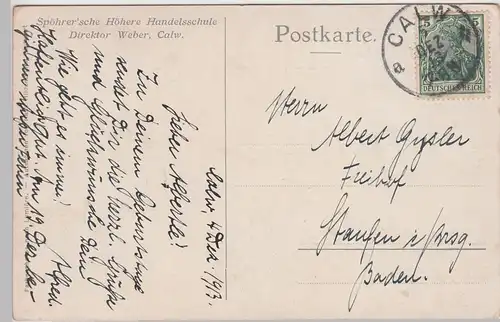 Spöhrer'sche Höhere Handelsschule
Direktor Weber, Calw.
Postkarte.
CALW
DEZ
5
DEUTSCHES REICH
Calw, 4. Dez. 1913.
Lieber Alberle!
Zu Deinem Geburtstage
sendet Dir die herzl. Grüße
und Glückwünsche Dein
Alfred.
Wie geht es immer?
Hoffentlich gut. Am 19. Dez. be-
Herrn
Albert Gysler
Freihof
Staufen i/Brsg.
Baden.